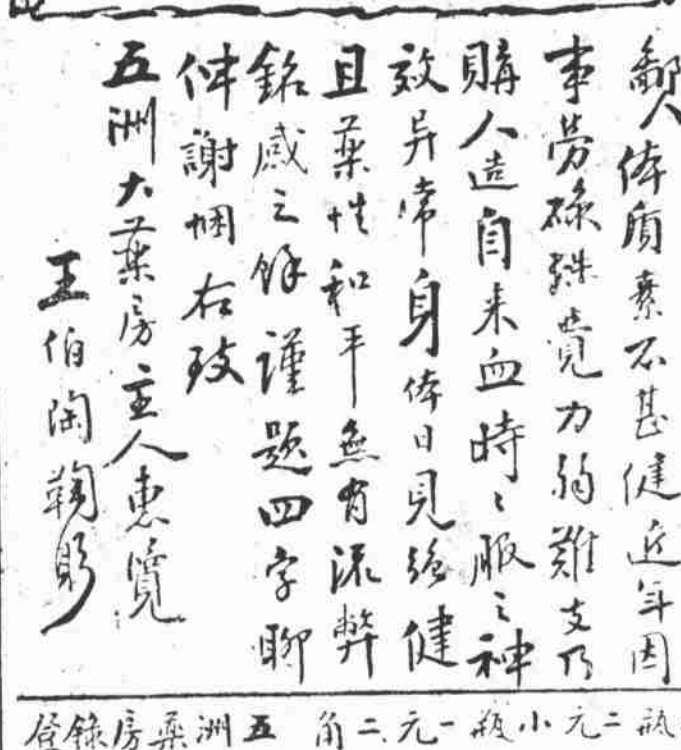 鄙人体质素不甚健近年因
事劳碌殊覺力弱難支乃
購人造自来血時〻服之神
效异常身体日見強健
且藥性和平無有流弊
銘感之餘謹題四字聊
伸謝悃右致
五洲大藥房主人惠覽
王伯陶鞠躬
瓶二元小瓶一元二角 五洲藥房錄登